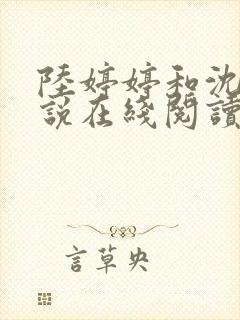 陸婷婷和沈
說在綫閱讀
言草央